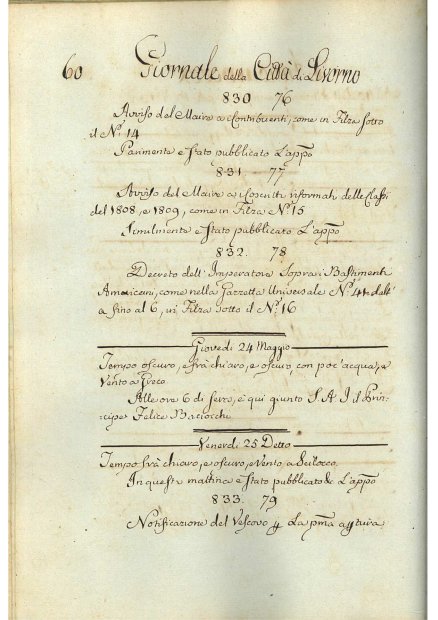 60 Giornale della Città di Livorno
830 76
Avviso del Maire a Contribuenti, come in Filza sotto
il N.º 14
Parimente è stato pubblicato L'appō
831 77
Avviso del Maire a Coscritti riformati delle Classi
del 1808, e 1809, come in Filza N.º 15
Similmente è stato pubblicato L'appō
832. 78
Decreto dell' Imperatore sopra i Bastimenti
Americani, come nella Gazzetta Universale N.º 41 dall'
a fino al 6, in Filza sotto il N.º 16
Giovedì 24 Maggio
Tempo oscuro, e frà chiaro, e oscuro con poc' acqua, e
Vento a Greco
Alle ore 6 di sera, è qui giunto S. A. I. il Prin-
cipe Felice Baciocchi
Venerdì 25 Detto
Tempo frà chiaro, e oscuro, e Vento a Scilocco
In questa mattina è stato pubblicato L'appō
833. 79
Notificazione del Vescovo La pm̄a